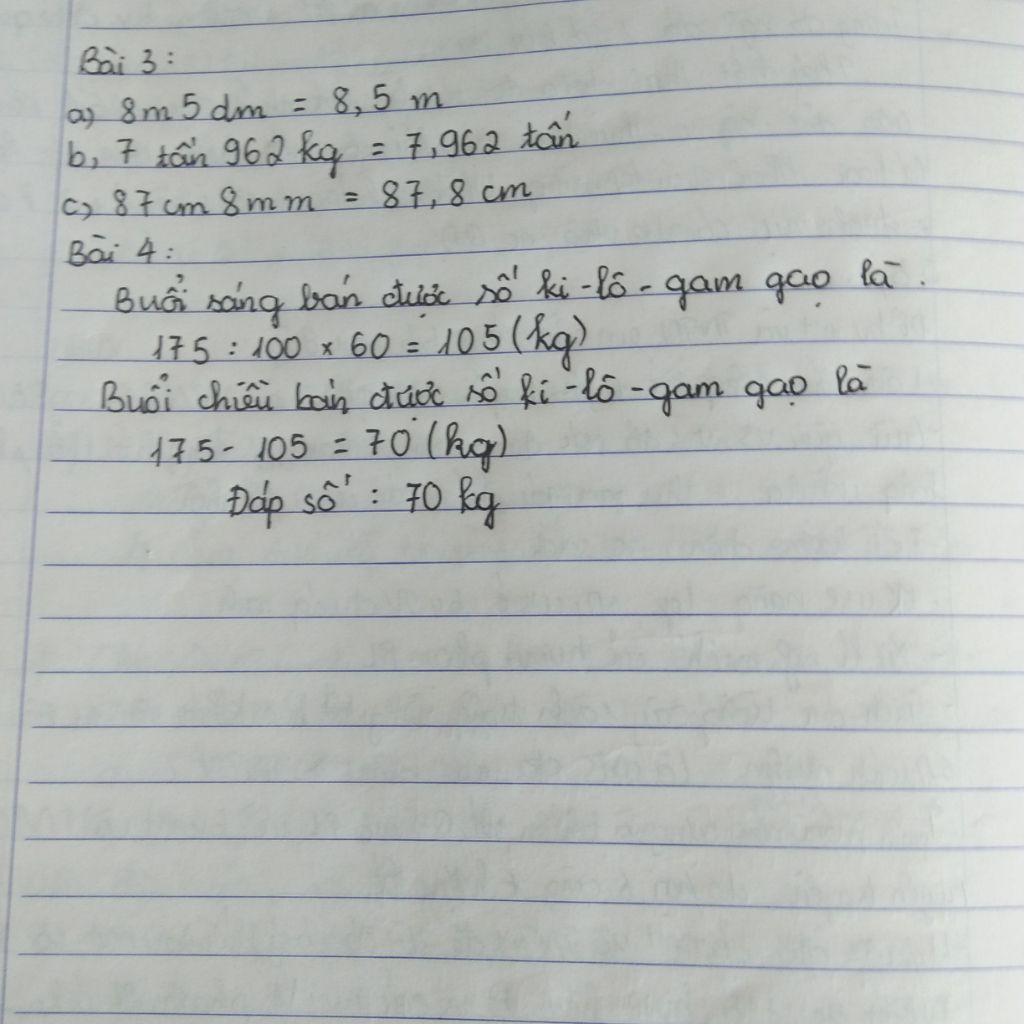 Bài 3:
a) 8m 5 dm = 8,5 m
b, 7 tấn 962 kg = 7,962 tấn
c) 87cm 8mm = 87,8 cm
Bài 4:
Buổi sáng bán được số ki-lô-gam gạo là.
175 : 100 x 60 = 105 (kg)
Buổi chiều bán được số ki-lô-gam gạo là
175 - 105 = 70 (kg)
Đáp số : 70 kg